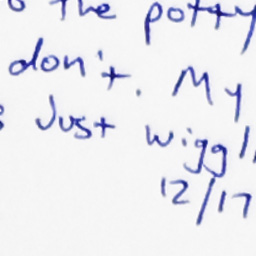 the potty
don't. My
Just wiggl
12/17